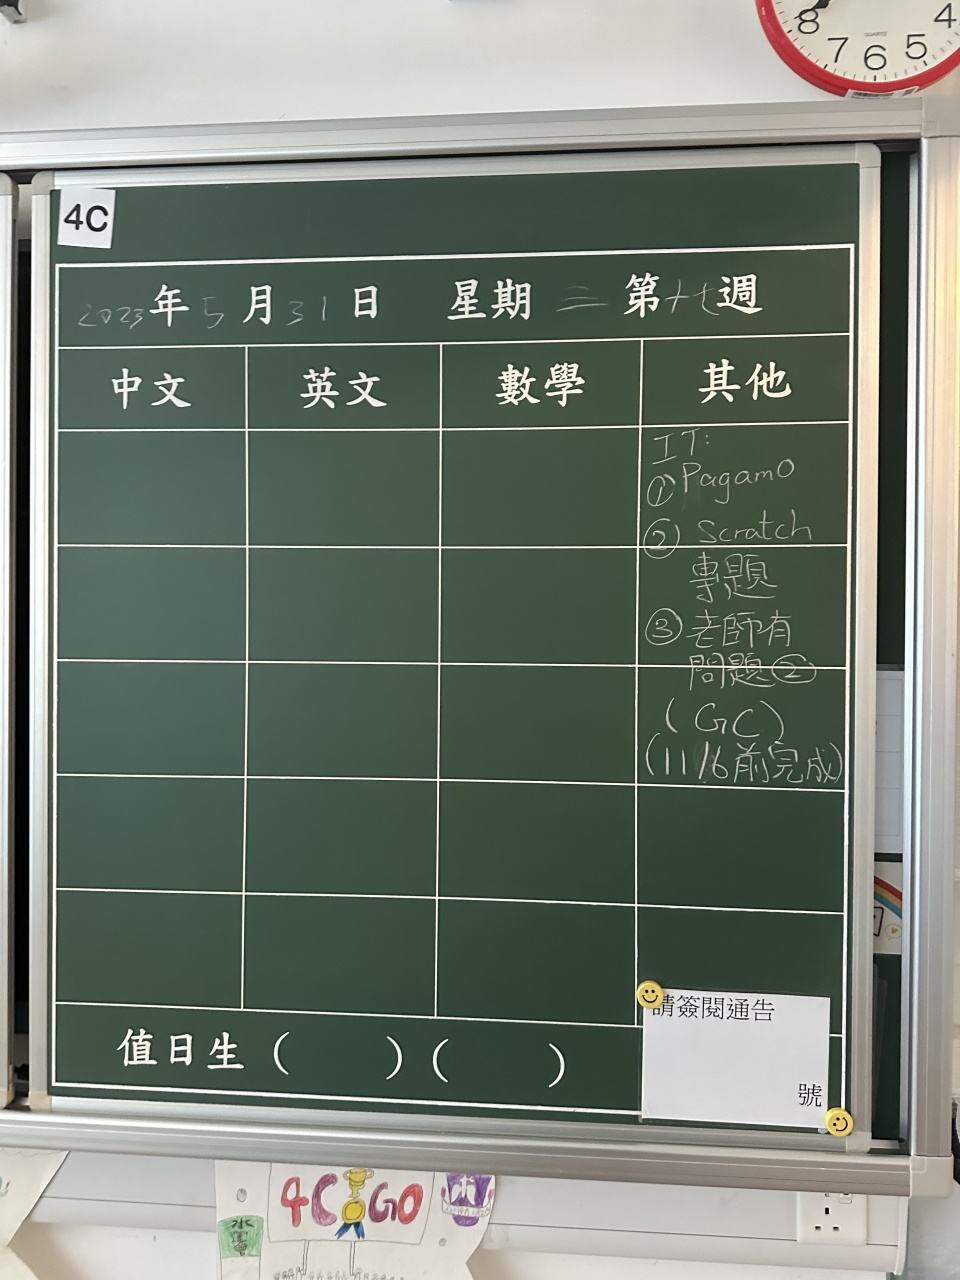 8 7 6 5 4
QUARTZ
4C
2023年5月31日 星期三 第十七週
中文 英文 數學 其他
IT:
①PagamO
② Scratch
專題
③ 老師有
問題②
(GC)
(11/6前完成)
請簽閱通告
號
值日生 ( ) ( )
4C GO
水運會